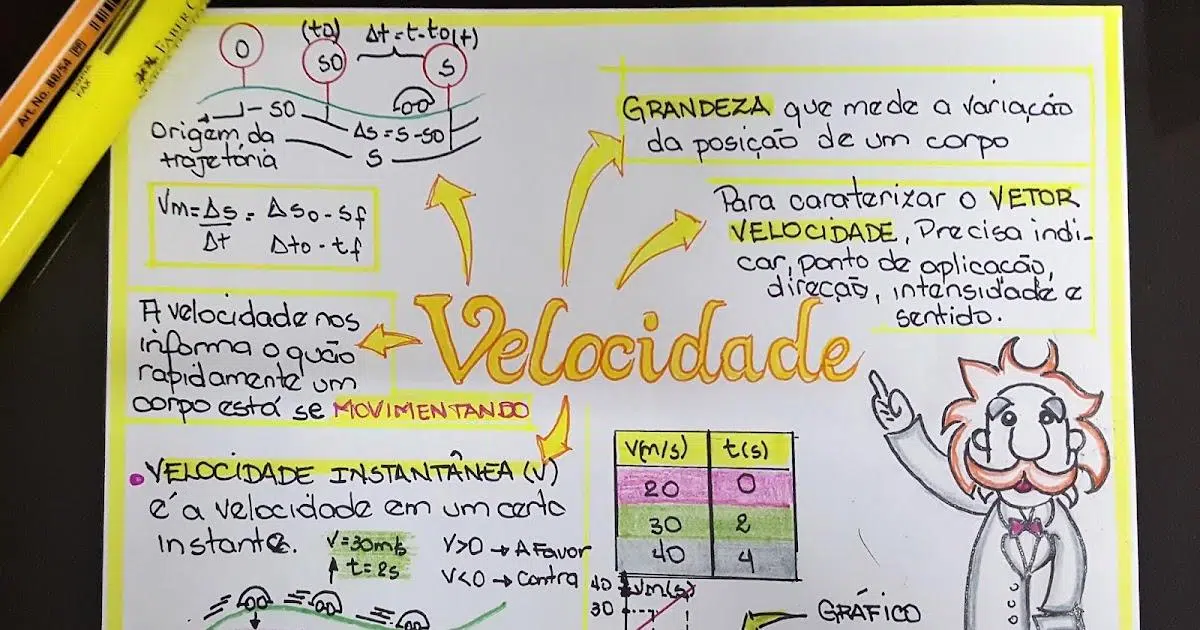 Art. No. 88/54
FABER C
(t0) Δt = t - t0 (t)
O S0 S
S0
Origem da
trajetória
Δs = s - s0
S
Vm = Δs = Δs0 - sf
Δt Δt0 - tf
GRANDEZA que mede a variação
da posição de um corpo
Para caraterizar o VETOR
VELOCIDADE, Precisa indi-
car, ponto de aplicação,
direção, intensidade e
sentido.
Velocidade
A velocidade nos
informa o quão
rapidamente um
corpo está se MOVIMENTANDO
VELOCIDADE INSTANTÂNEA (V)
é a velocidade em um certo
instante.
V = 30m/s
t = 2s
V>0 → A Favor
V<0 → Contra
V(m/s) t(s)
20 0
30 2
40 4
40 Vm(s)
30
GRÁFICO